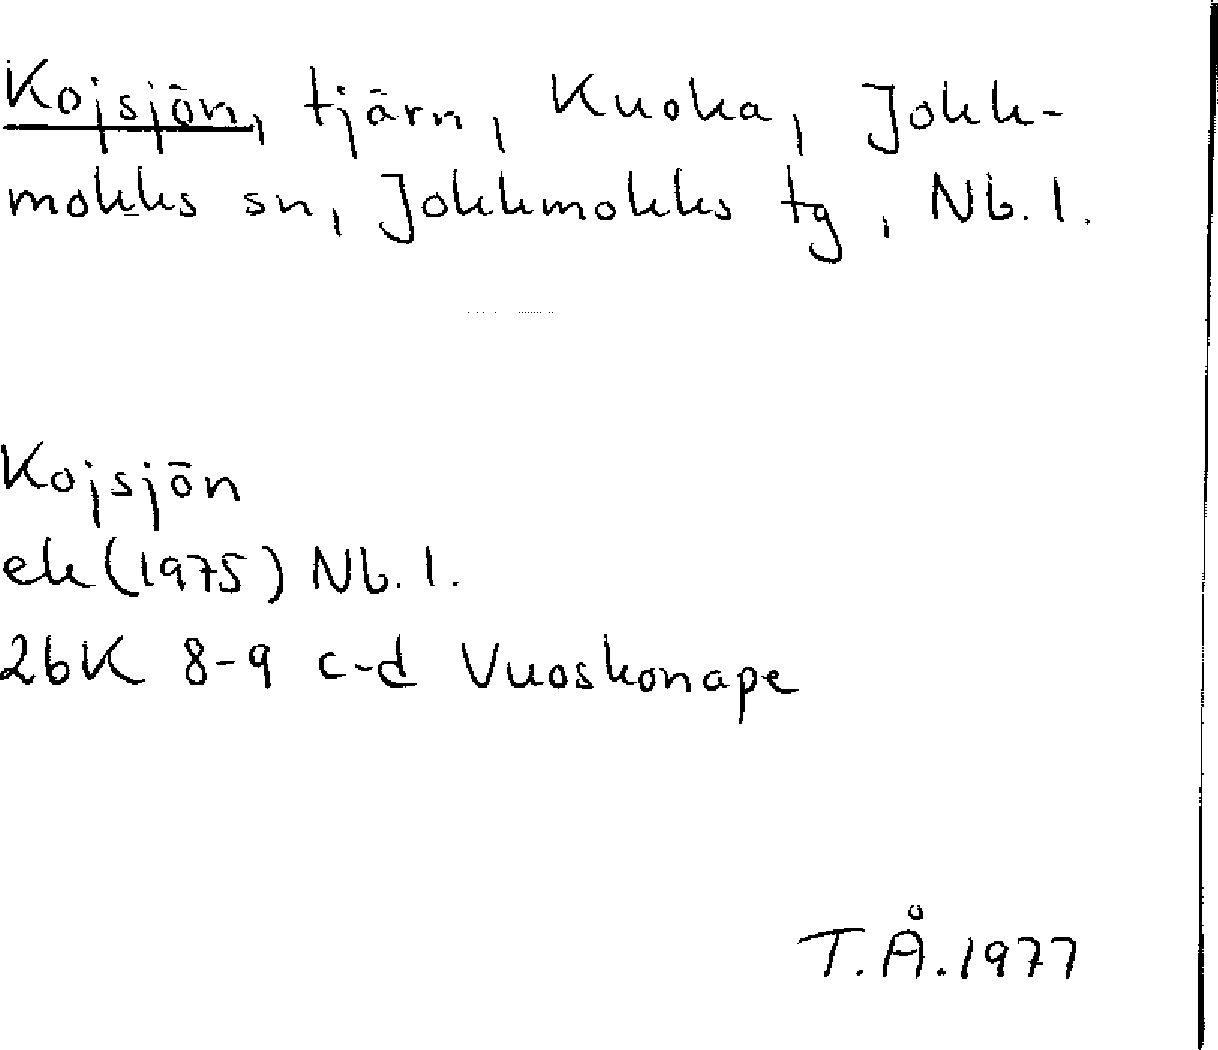 Kojsjön, tjärn, Kuoka, Jokk-
mokks sn, Jokkmokks tg, Nb. l.
Kojsjön
ek (1975) Nb. l.
26K 8-9 c-d Vuoskonape
T.Å. 1977